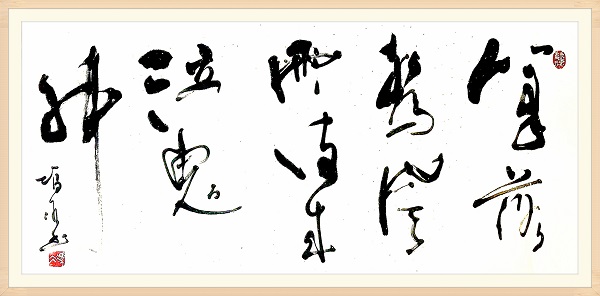 筆落
驚風
雨詩成
泣鬼
神